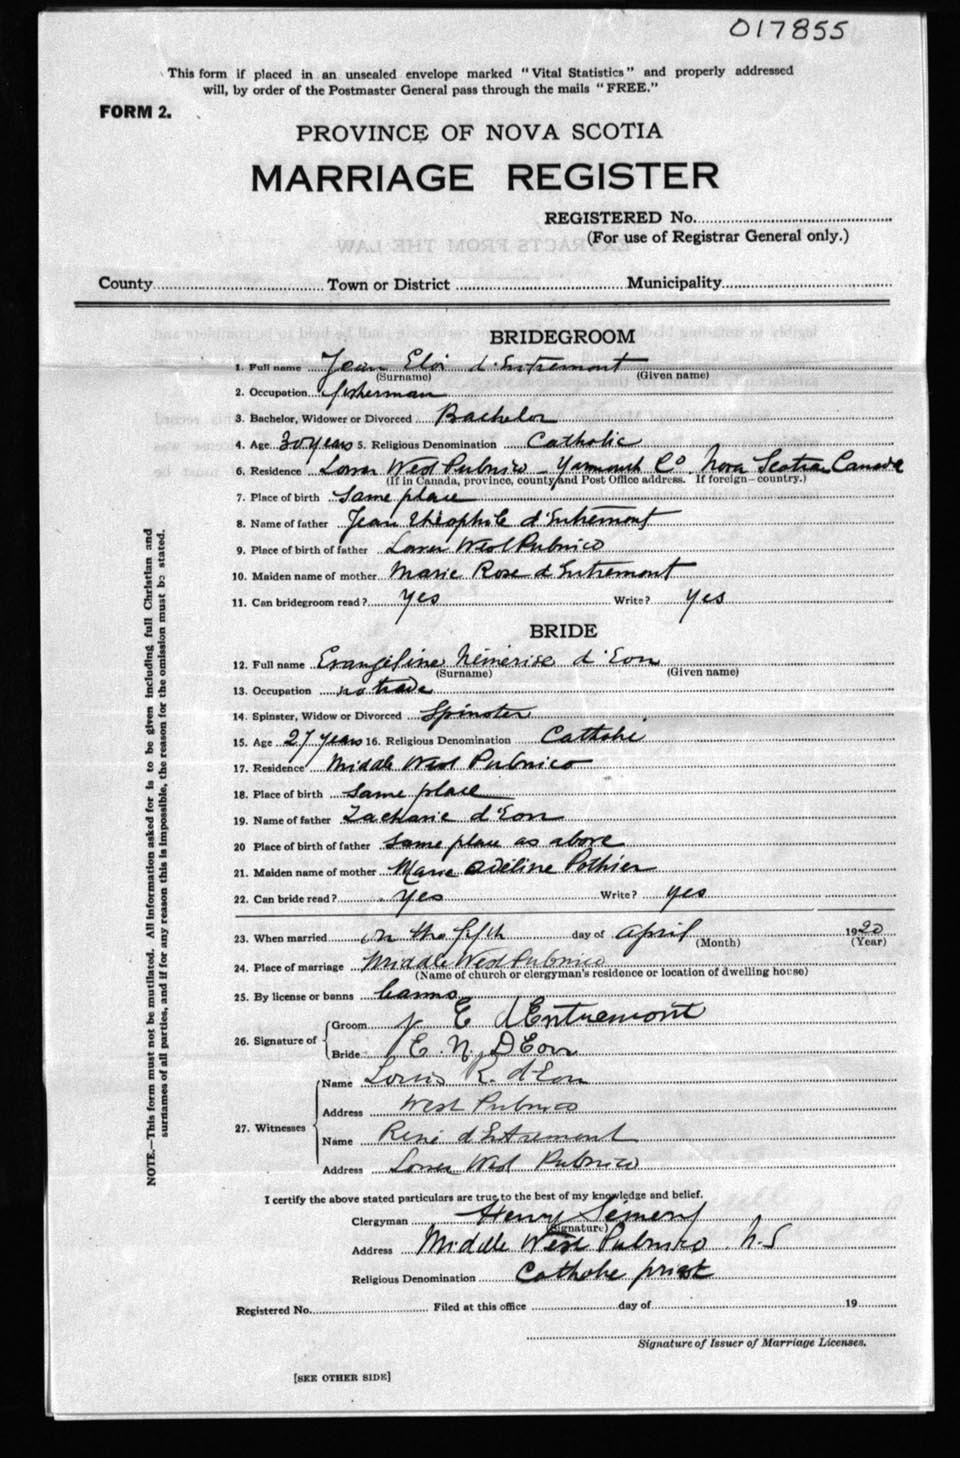 017855
This form if placed in an unsealed envelope marked "Vital Statistics" and properly addressed
will, by order of the Postmaster General pass through the mails "FREE."
FORM 2.
PROVINCE OF NOVA SCOTIA
MARRIAGE REGISTER
REGISTERED No.
(For use of Registrar General only.)
EXTRACTS FROM THE LAW
County Town or District Municipality
BRIDEGROOM
1. Full name Jean Eloi d'Entremont
(Surname) (Given name)
2. Occupation fisherman
3. Bachelor, Widower or Divorced Bachelor
4. Age 30 years 5. Religious Denomination Catholic
6. Residence Lower West Pubnico - Yarmouth Co Nova Scotia Canada
(If in Canada, province, county and Post Office address. If foreign—country.)
7. Place of birth same place
8. Name of father Jean Théophile d'Entremont
9. Place of birth of father Lower West Pubnico
10. Maiden name of mother Marie Rose d'Entremont
11. Can bridegroom read? yes Write? yes
BRIDE
12. Full name Evangeline Némerise d'Eon
(Surname) (Given name)
13. Occupation no trade
14. Spinster, Widow or Divorced Spinster
15. Age 27 years 16. Religious Denomination Catholic
17. Residence Middle West Pubnico
18. Place of birth same place
19. Name of father Zacharie d'Eon
20 Place of birth of father same place as above
21. Maiden name of mother Marie Adéline Pothier
22. Can bride read? yes Write? yes
23. When married on the fifth day of April 1920
(Month) (Year)
24. Place of marriage Middle West Pubnico
(Name of church or clergyman's residence or location of dwelling house)
25. By license or banns banns
26. Signature of Groom J E d'Entremont
Bride E. N. D'Eon
27. Witnesses Name Louis R. d'Eon
Address West Pubnico
Name René d'Entremont
Address Lower West Pubnico
I certify the above stated particulars are true to the best of my knowledge and belief.
Clergyman Henry
(Signature)
Address Middle West Pubnico N.S
Religious Denomination Catholic priest
Registered No. Filed at this office day of 19
Signature of Issuer of Marriage Licenses.
[SEE OTHER SIDE]
NOTE.—This form must not be mutilated. All information asked for is to be given including full Christian and
surnames of all parties, and if for any reason this is impossible, the reason for the omission must be stated.